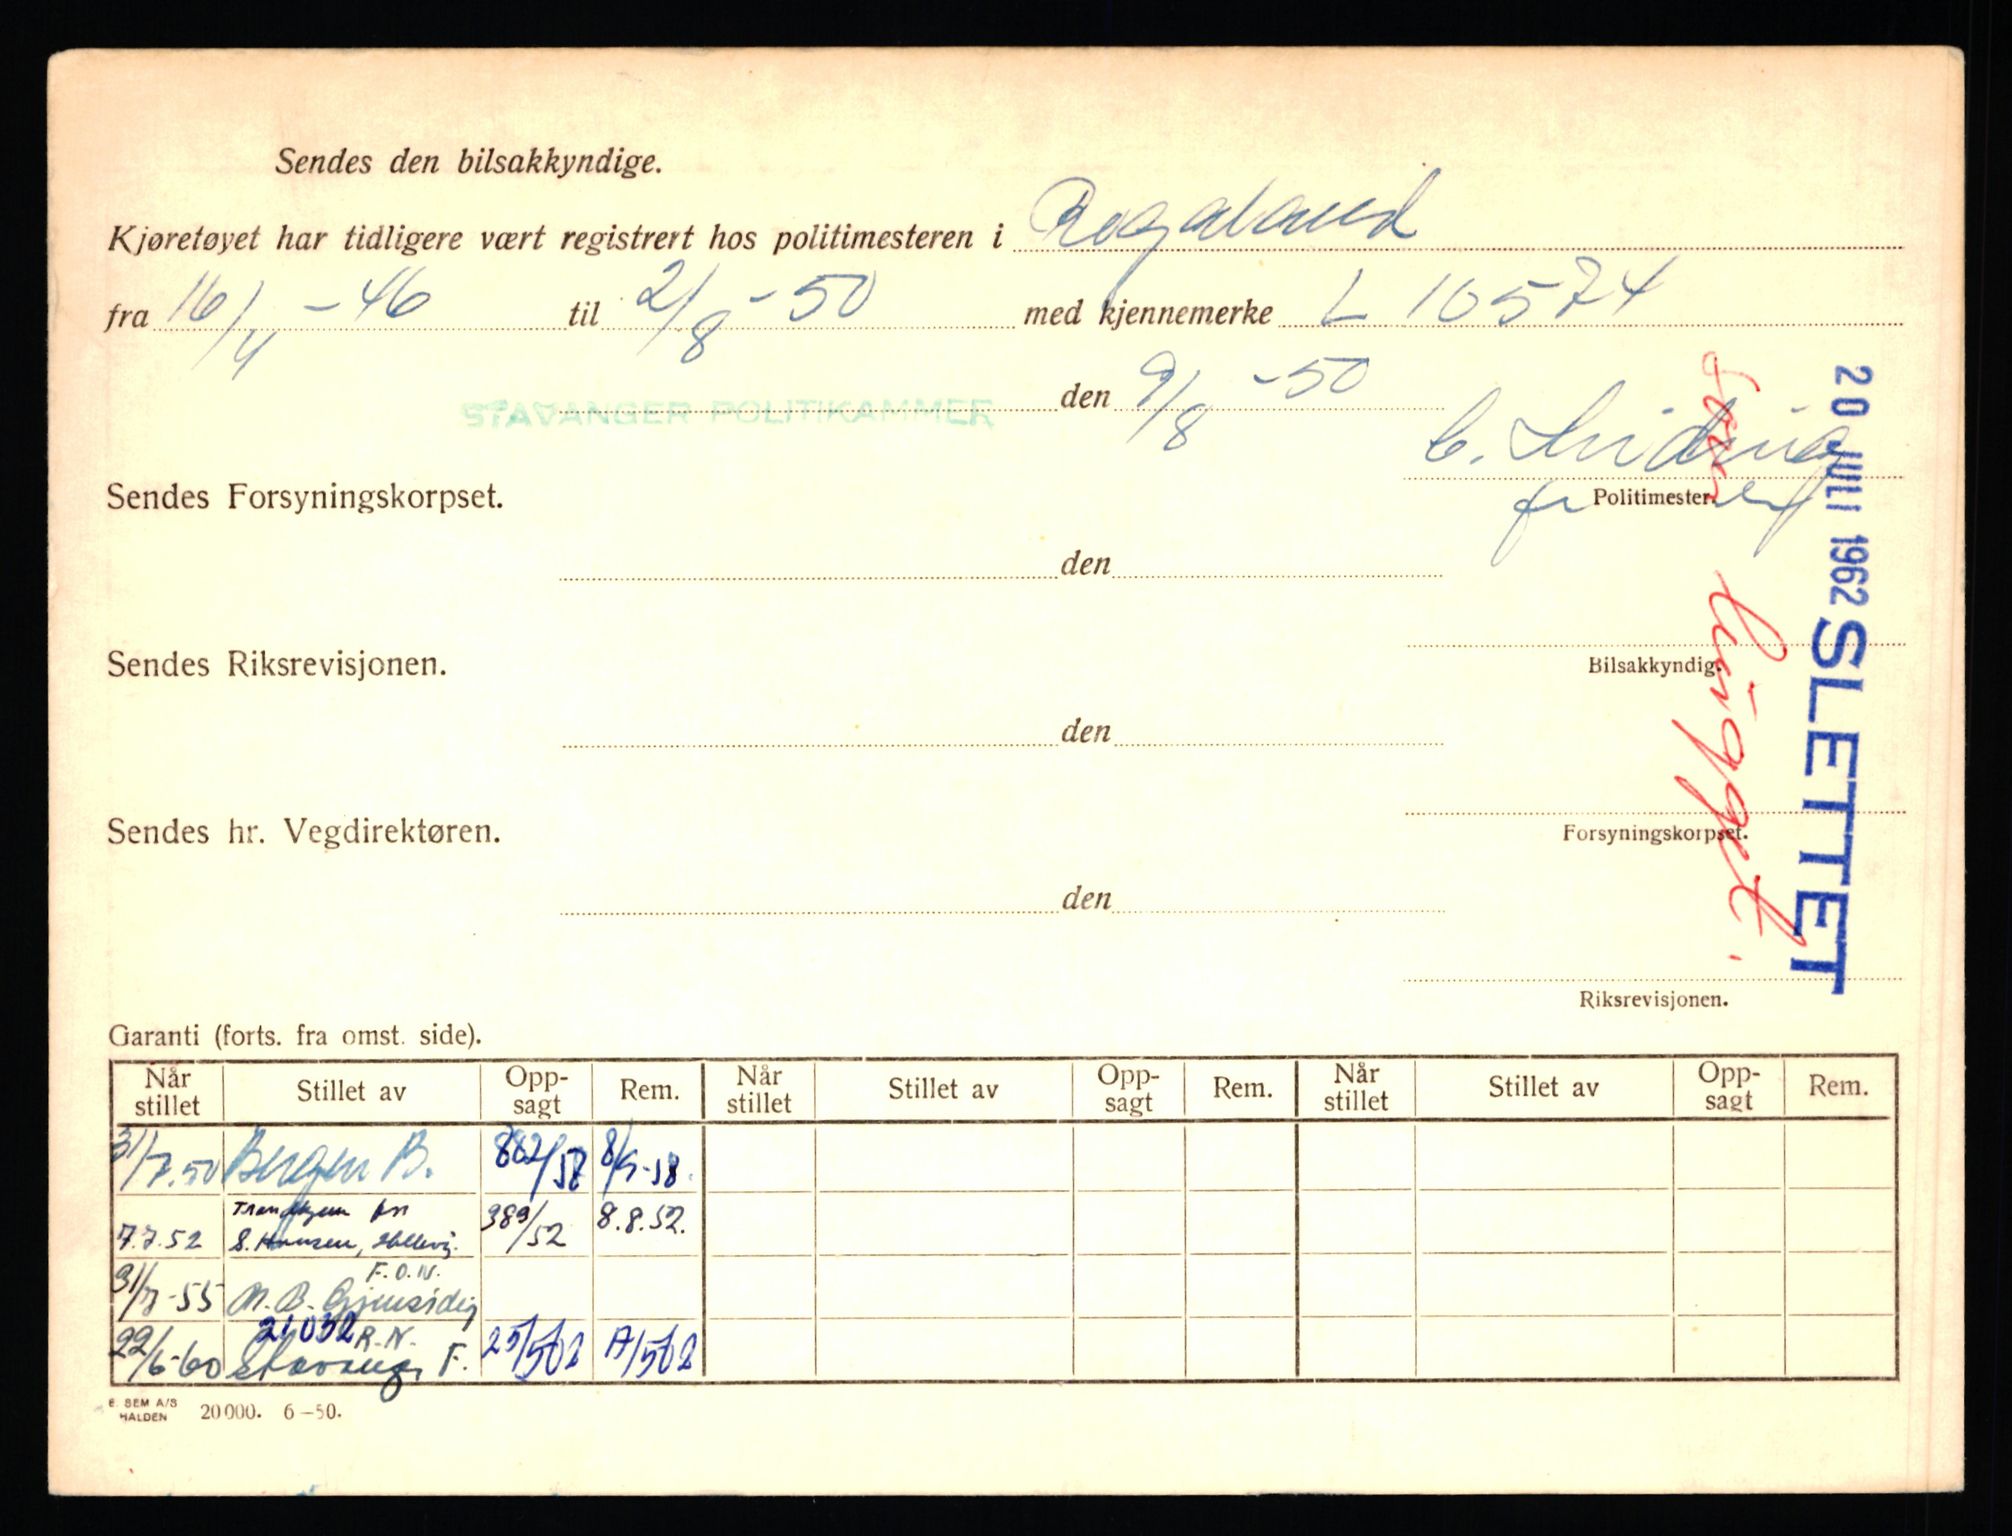 Sendes den bilsakkyndige.
Kjøretøyet har tidligere vært registrert hos politimesteren i Rogaland
fra 16/4 -46 til 2/8 -50 med kjennemerke L 10574
STAVANGER POLITIKAMMER den 9/8 -50
Sendes Forsyningskorpset.
Politimester.
den
Sendes Riksrevisjonen.
Bilsakkyndig.
den
Sendes hr. Vegdirektøren.
Forsyningskorpset.
den
Riksrevisjonen.
20 JULI 1962 SLETTET
Garanti (forts. fra omst. side).
Når stillet Stillet av Opp-sagt Rem. Når stillet Stillet av Opp-sagt Rem. Når stillet Stillet av Opp-sagt Rem.
31/7.50 Bergen B. 882/58 8/9-58.
7.7.52 S. Hansen, 389/52 8.8.52.
F.O.N.
31/7-55 N. B. Gjensidig
21032 R.N.
22/6-60 Stavang. F. 25/502 A/502
E. SEM A/S
HALDEN 20000. 6-50.